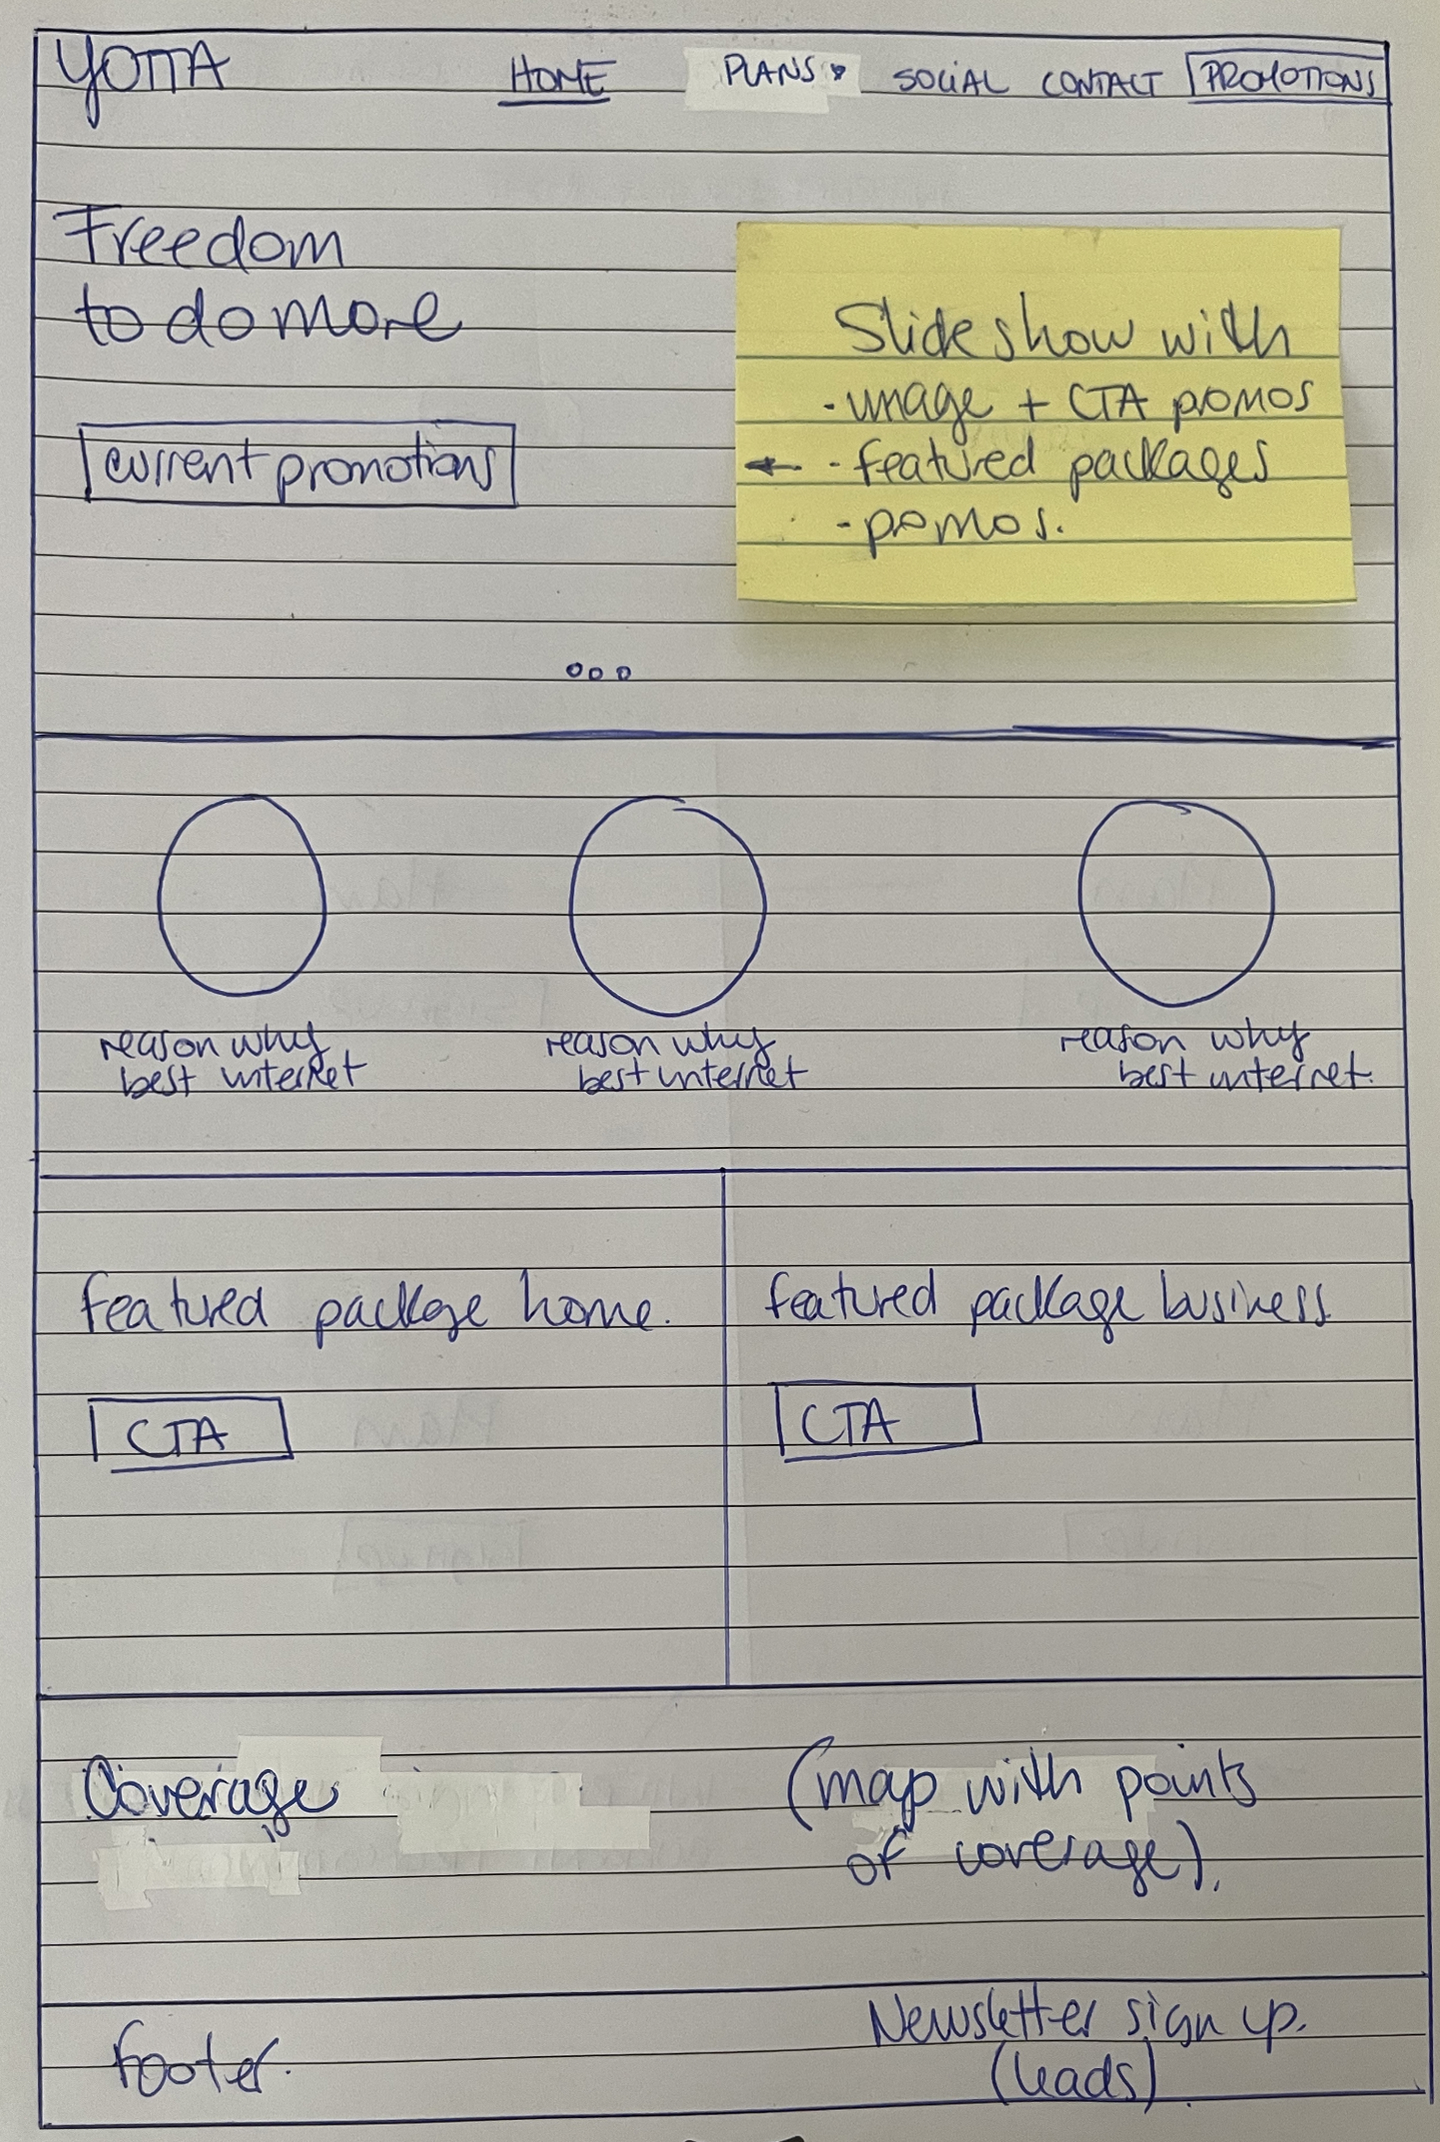 YOTTA HOME PLANS SOCIAL CONTACT PROMOTIONS
Freedom
to do more
current promotions
Slideshow with
- image + CTA promos
- featured packages
- pomos.
reason why
best internet
reason why
best internet
reason why
best internet.
featured package home.
CTA
featured package business
CTA
Coverage
(map with points
of coverage).
footer.
Newsletter sign up.
(leads)